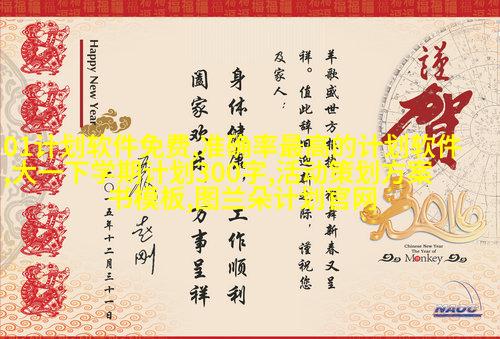 謹
賀
2016
Chinese New Year
The Year of
Monkey
NAOC
羊歌盛世方舞新春又呈
祥。值此辞旧迎新之际，谨祝您
及家人：
身体健康，工作顺利
阖家欢乐，万事呈祥
一五年十二月三十一日
Happy New Year
01计划软件免费,准确率最高的计划软件
,大一下学期计划300字,,活动策划方案
书模板,图兰朵计划官网